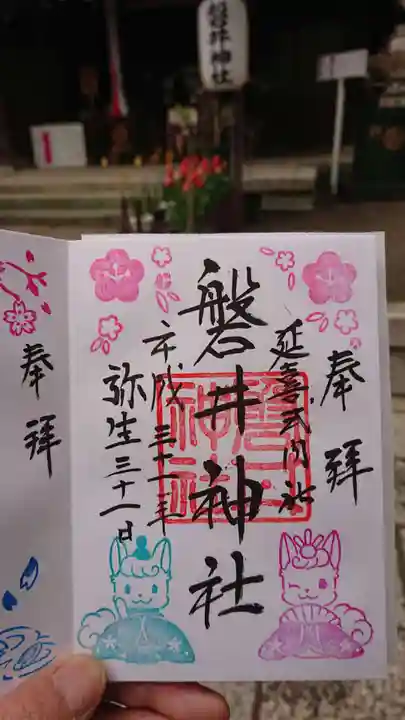 磐井神社
奉拝
延喜式内社
磐井神社
磐井神社
平成三十一年
弥生三十一日
奉拝